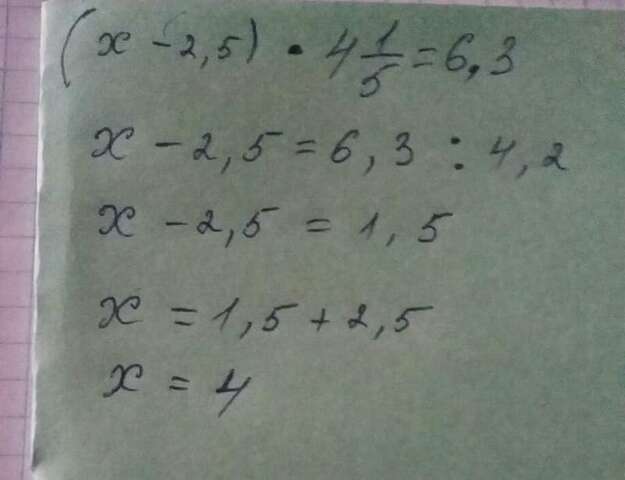 (x - 2,5) · 4 1/5 = 6,3
x - 2,5 = 6,3 : 4,2
x - 2,5 = 1,5
x = 1,5 + 2,5
x = 4